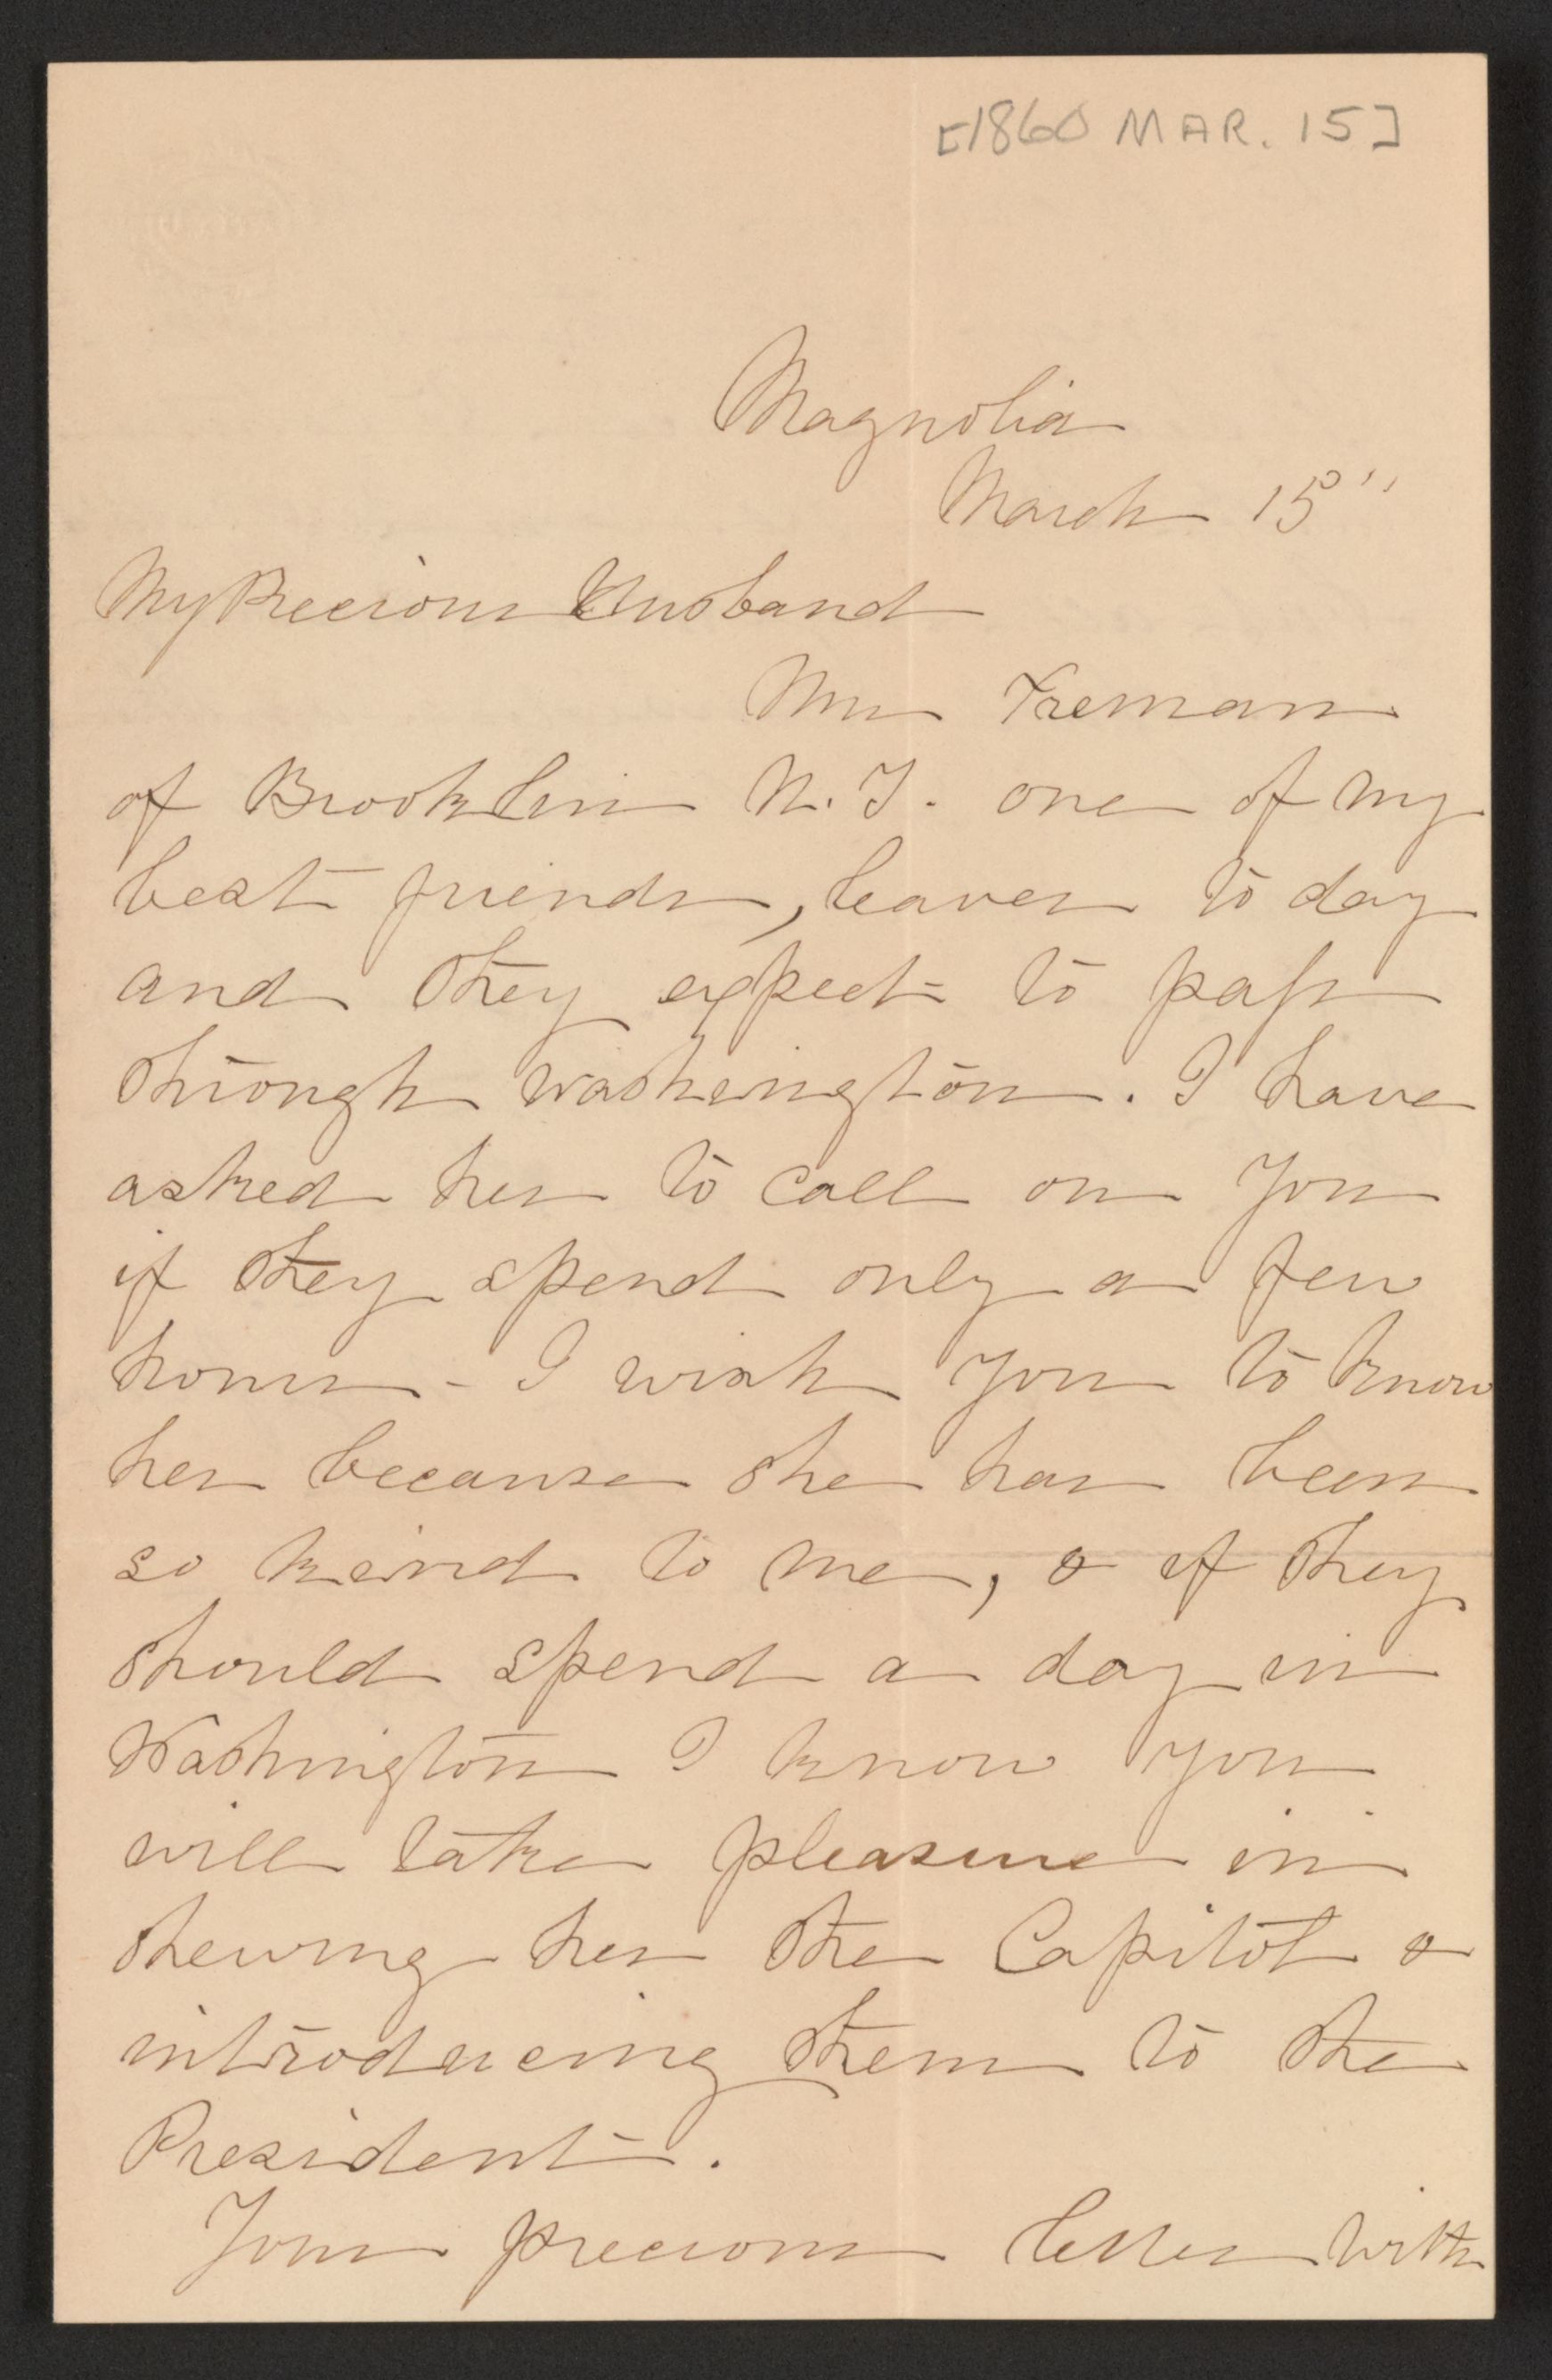 [1860 MAR. 15]
Magnolia
March 15"
My Precious Husband
Mrs Freman
of Brooklin N.Y. one of my
best friends, leaves to day
and they expect to pass
through Washington. I have
asked her to call on you
if they spend only a few
hours - I wish you to know
her because she has been
so kind to me, & if they
should spend a day in
Washington I know you
will take pleasure in
shewing her the Capitol &
introducing them to the
President.
Your precious letter with